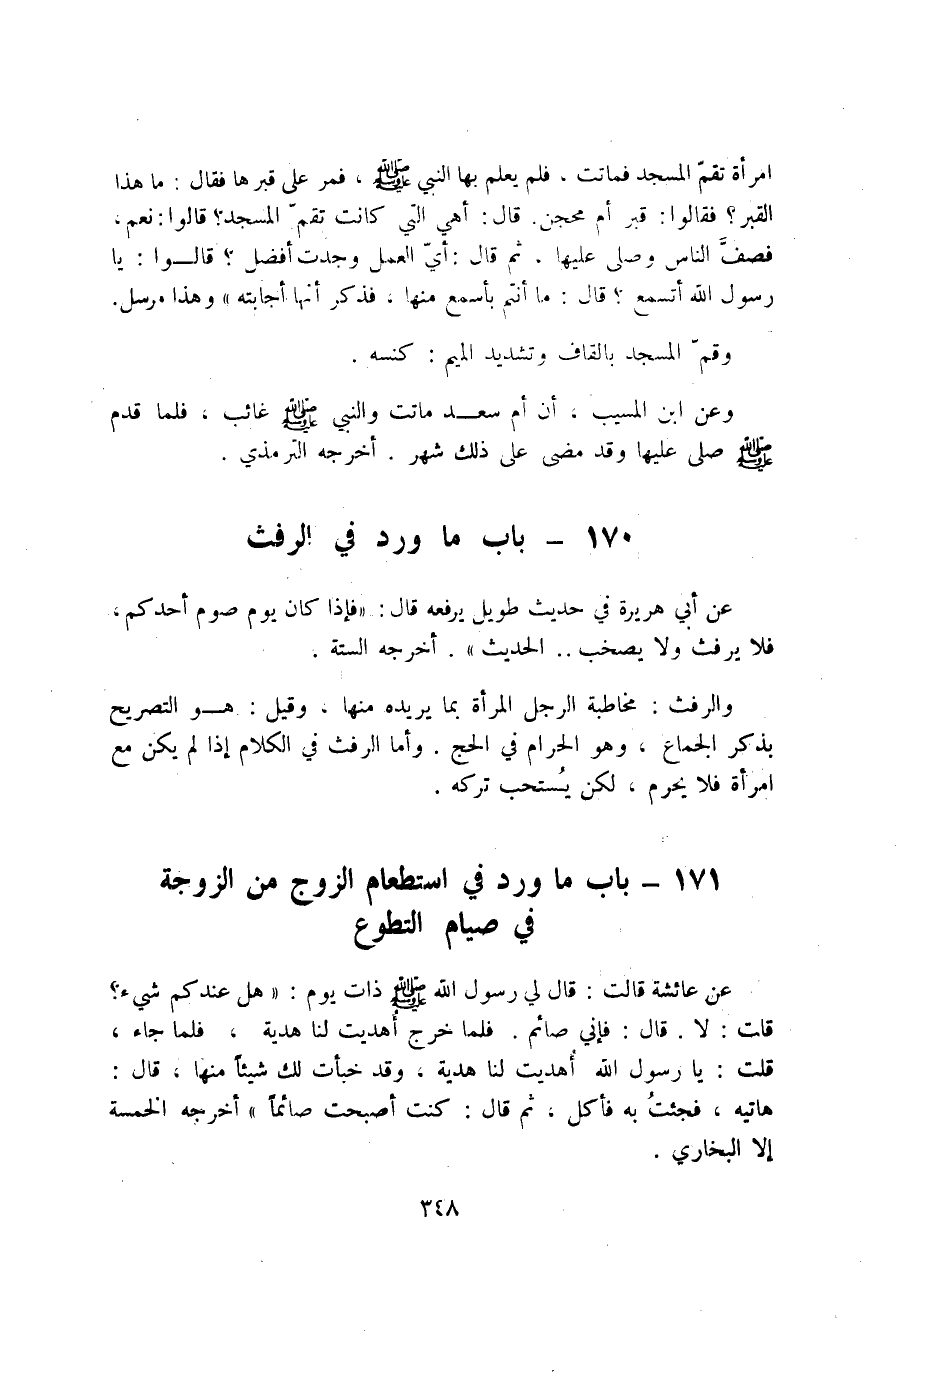 امرأة تقمّ المسجد فماتت ، فلم يعلم بها النبي ﷺ ، فمر على قبرها فقال : ما هذا
القبر؟ فقالوا: قبر أم محجن. قال: أهي التي كانت تقمّ المسجد؟ قالوا: نعم ،
فصفَّ الناس وصلى عليها . ثم قال : أيّ العمل وجدت أفضل ؟ قالـــوا : يا
رسول الله أتسمع ؟ قال : ما أنتم بأسمع منها ، فذكر أنها أجابته » وهذا مرسل.
وقمّ المسجد بالقاف وتشديد الميم : كنسه .
وعن ابن المسيب ، أن أم سعـــد ماتت والنبي ﷺ غائب ، فلما قدم
ﷺ صلى عليها وقد مضى على ذلك شهر . أخرجه الترمذي .
١٧٠ – باب ما ورد في الرفث
عن أبي هريرة في حديث طويل يرفعه قال : «فإذا كان يوم صوم أحدكم ،
فلا يرفث ولا يصخب .. الحديث » . أخرجه الستة .
والرفث : مخاطبة الرجل المرأة بما يريده منها ، وقيل : هـــو التصريح
بذكر الجماع ، وهو الحرام في الحج . وأما الرفث في الكلام إذا لم يكن مع
امرأة فلا يحرم ، لكن يُستحب تركه .
١٧١ – باب ما ورد في استطعام الزوج من الزوجة
في صيام التطوع
عن عائشة قالت : قال لي رسول الله ﷺ ذات يوم : « هل عندكم شيء؟
قلت : لا . قال : فإني صائم . فلما خرج أُهديت لنا هدية ، فلما جاء ،
قلت : يا رسول الله أُهديت لنا هدية ، وقد خبأت لك شيئاً منها ، قال :
هاتيه ، فجئتُ به فأكل ، ثم قال : كنت أصبحت صائماً » أخرجه الخمسة
إلا البخاري .
٣٤٨